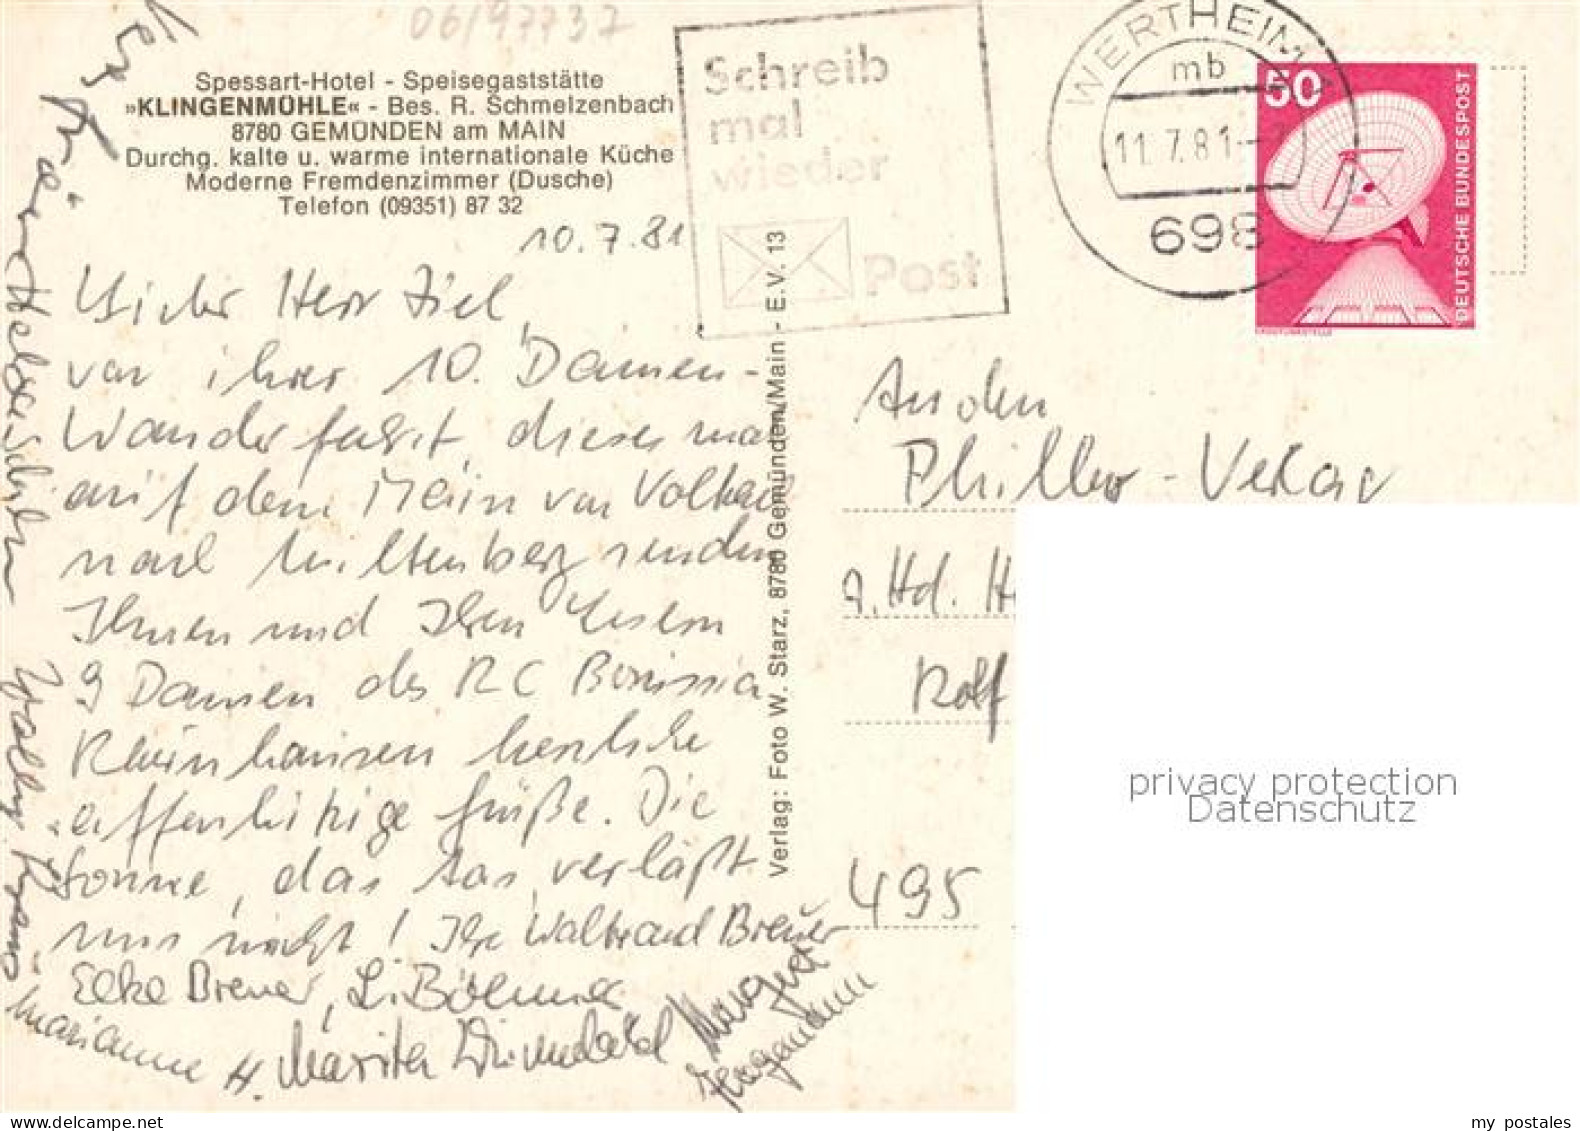 06/97737
Spessart-Hotel - Speisegaststätte
»KLINGENMÜHLE« - Bes. R. Schmelzenbach
8780 GEMÜNDEN am MAIN
Durchg. kalte u. warme internationale Küche
Moderne Fremdenzimmer (Dusche)
Telefon (09351) 87 32
10.7.81
Lieber Herr Ziel,
von ihrer 10. Damen-
Wanderfahrt, dieses mal
auf dem Main von Volkach
nach Miltenberg senden
Ihnen und Ihren Lesern
9 Damen des RC Borussia
Rheinhausen herzliche
affenhitzige Grüße. Die
Sonne, das Aas, verläßt
uns nicht! Ihre Waltraud Breuer
Elke Breuer,
Marianne H. Marita
Margret
Verlag: Foto W. Starz, 8780 Gemünden/Main - E.V. 13
Schreib
mal
wieder
Post
WERTHEIM
mb
11.7.81
698
50
DEUTSCHE BUNDESPOST
An den
Philler-Verlag
z. Hd. H
Rolf
495
privacy protection
Datenschutz
my postales
www.delcampe.net